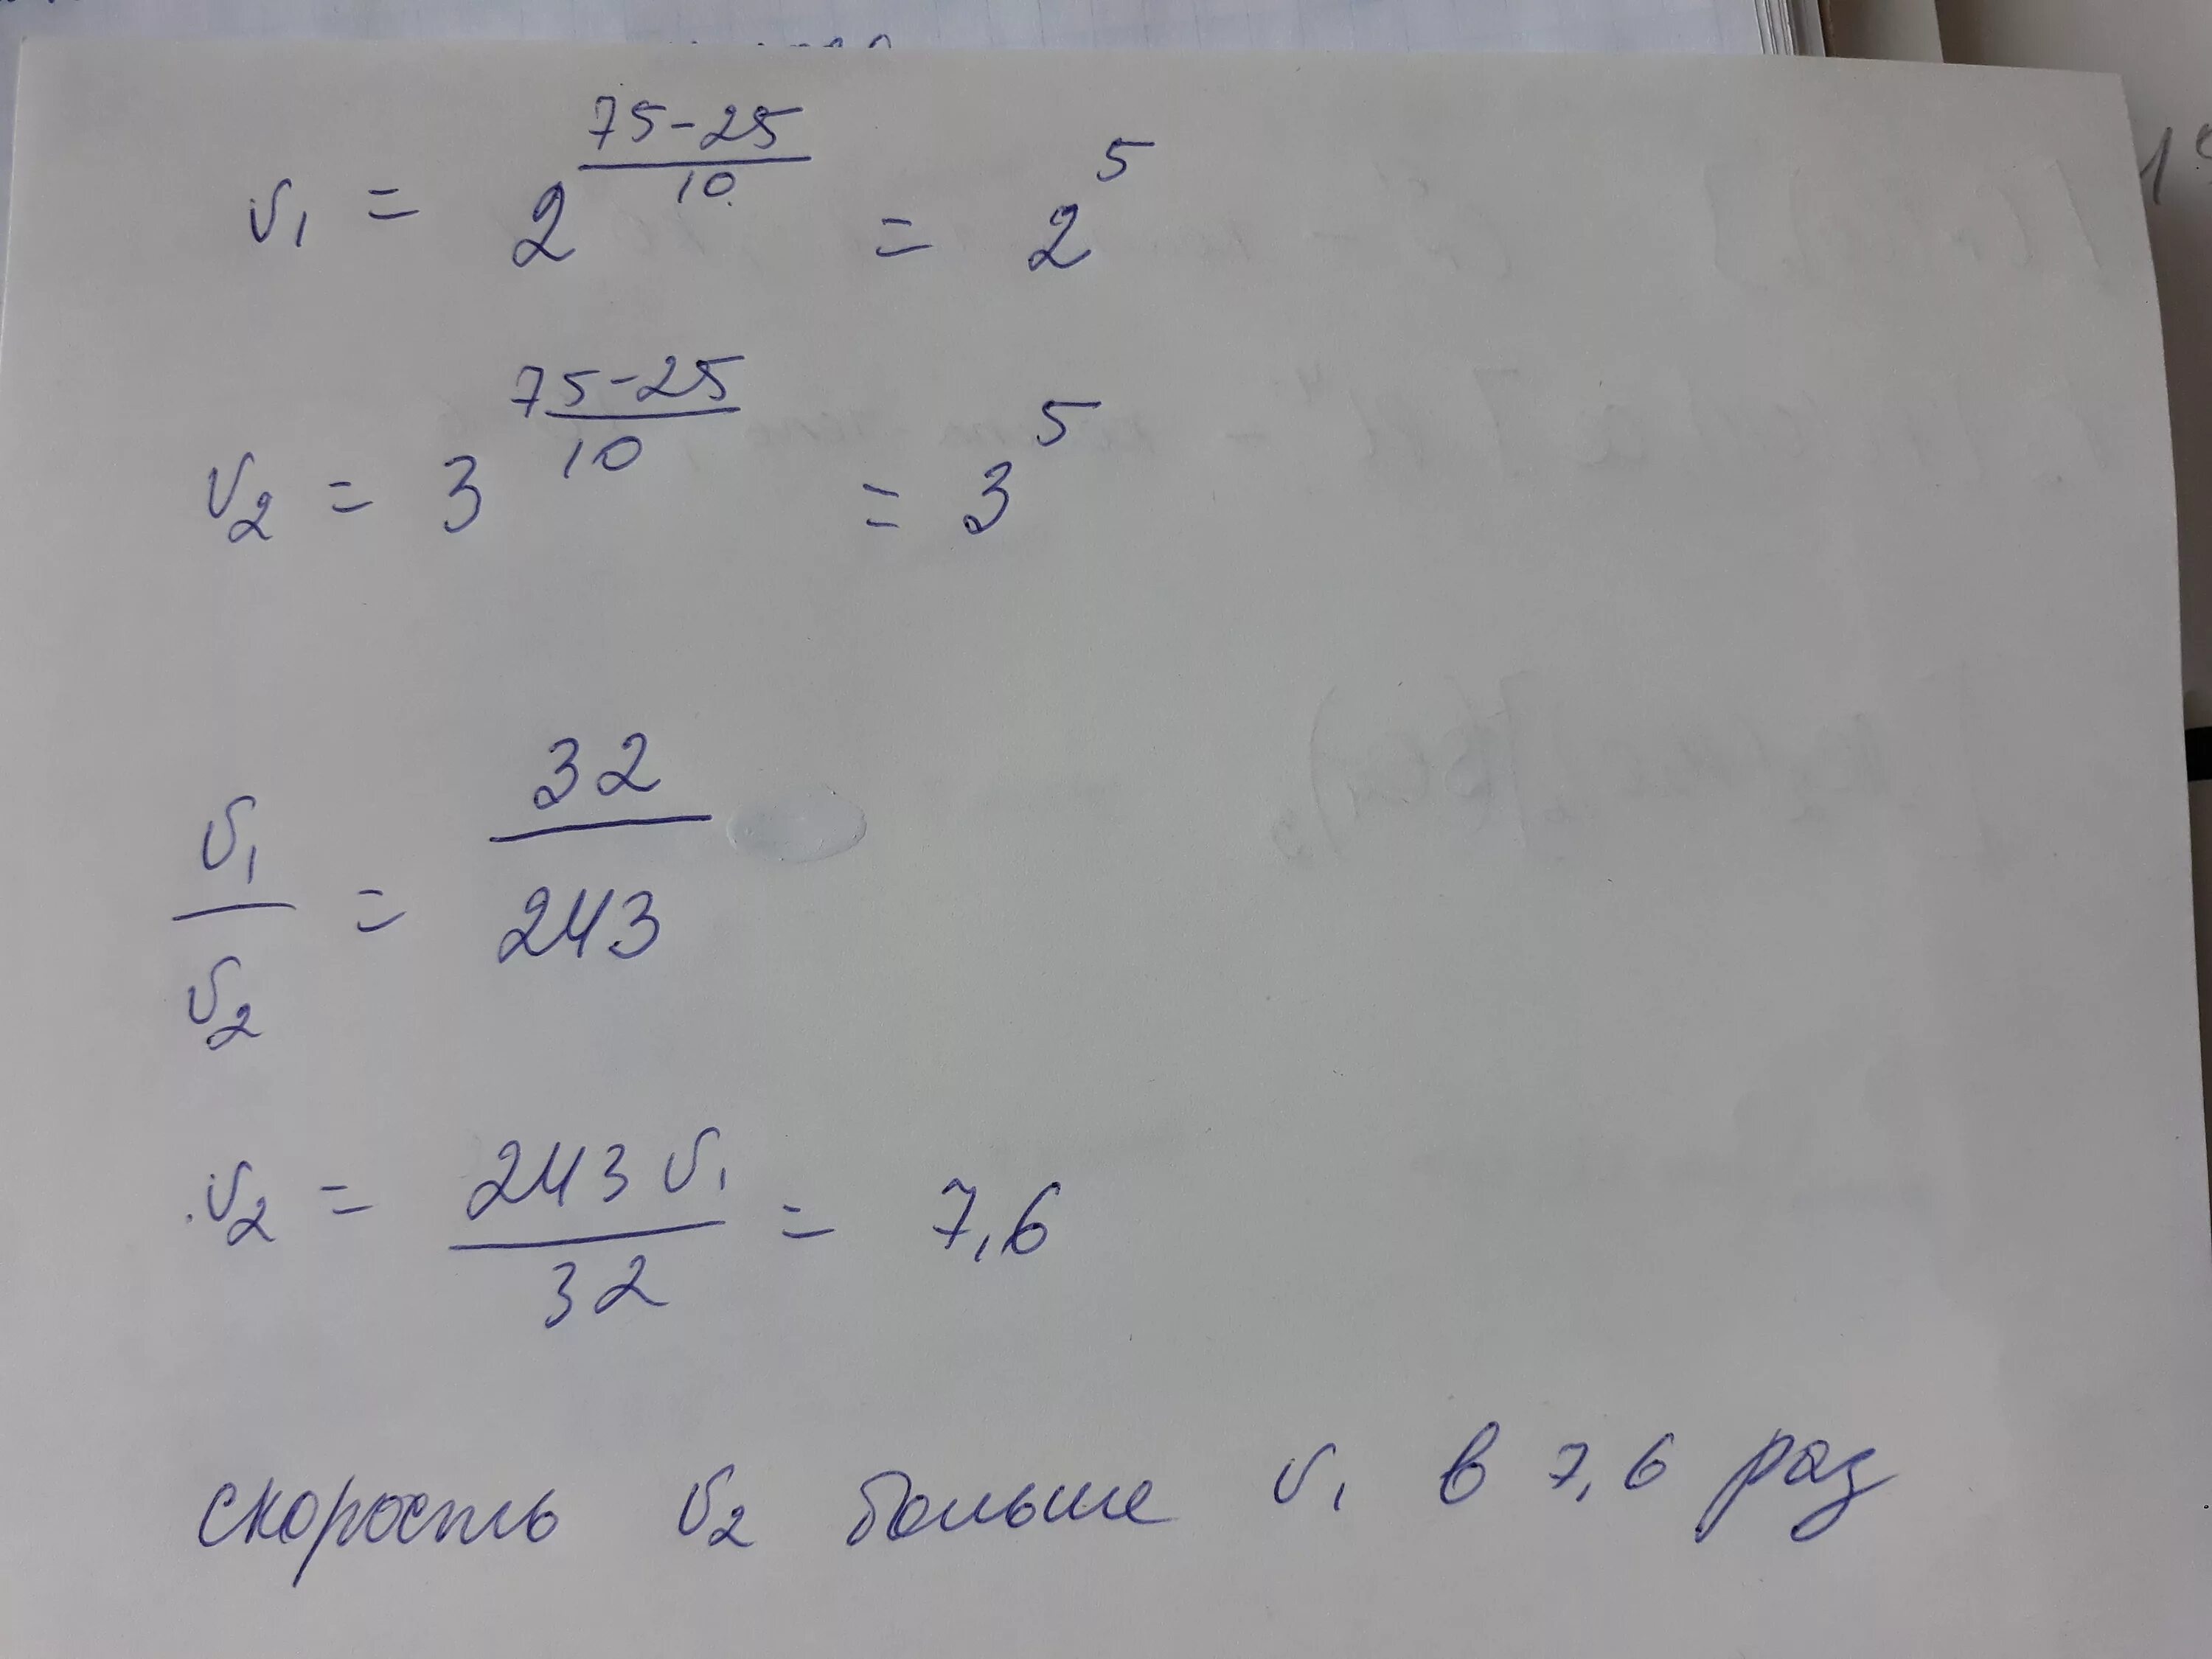 v₁ = 2^((75-25)/10) = 2^5
v₂ = 3^((75-25)/10) = 3^5
v₁/v₂ = 32/243
v₂ = 243 v₁/32 = 7,6
скорость v₂ больше v₁ в 7,6 раз